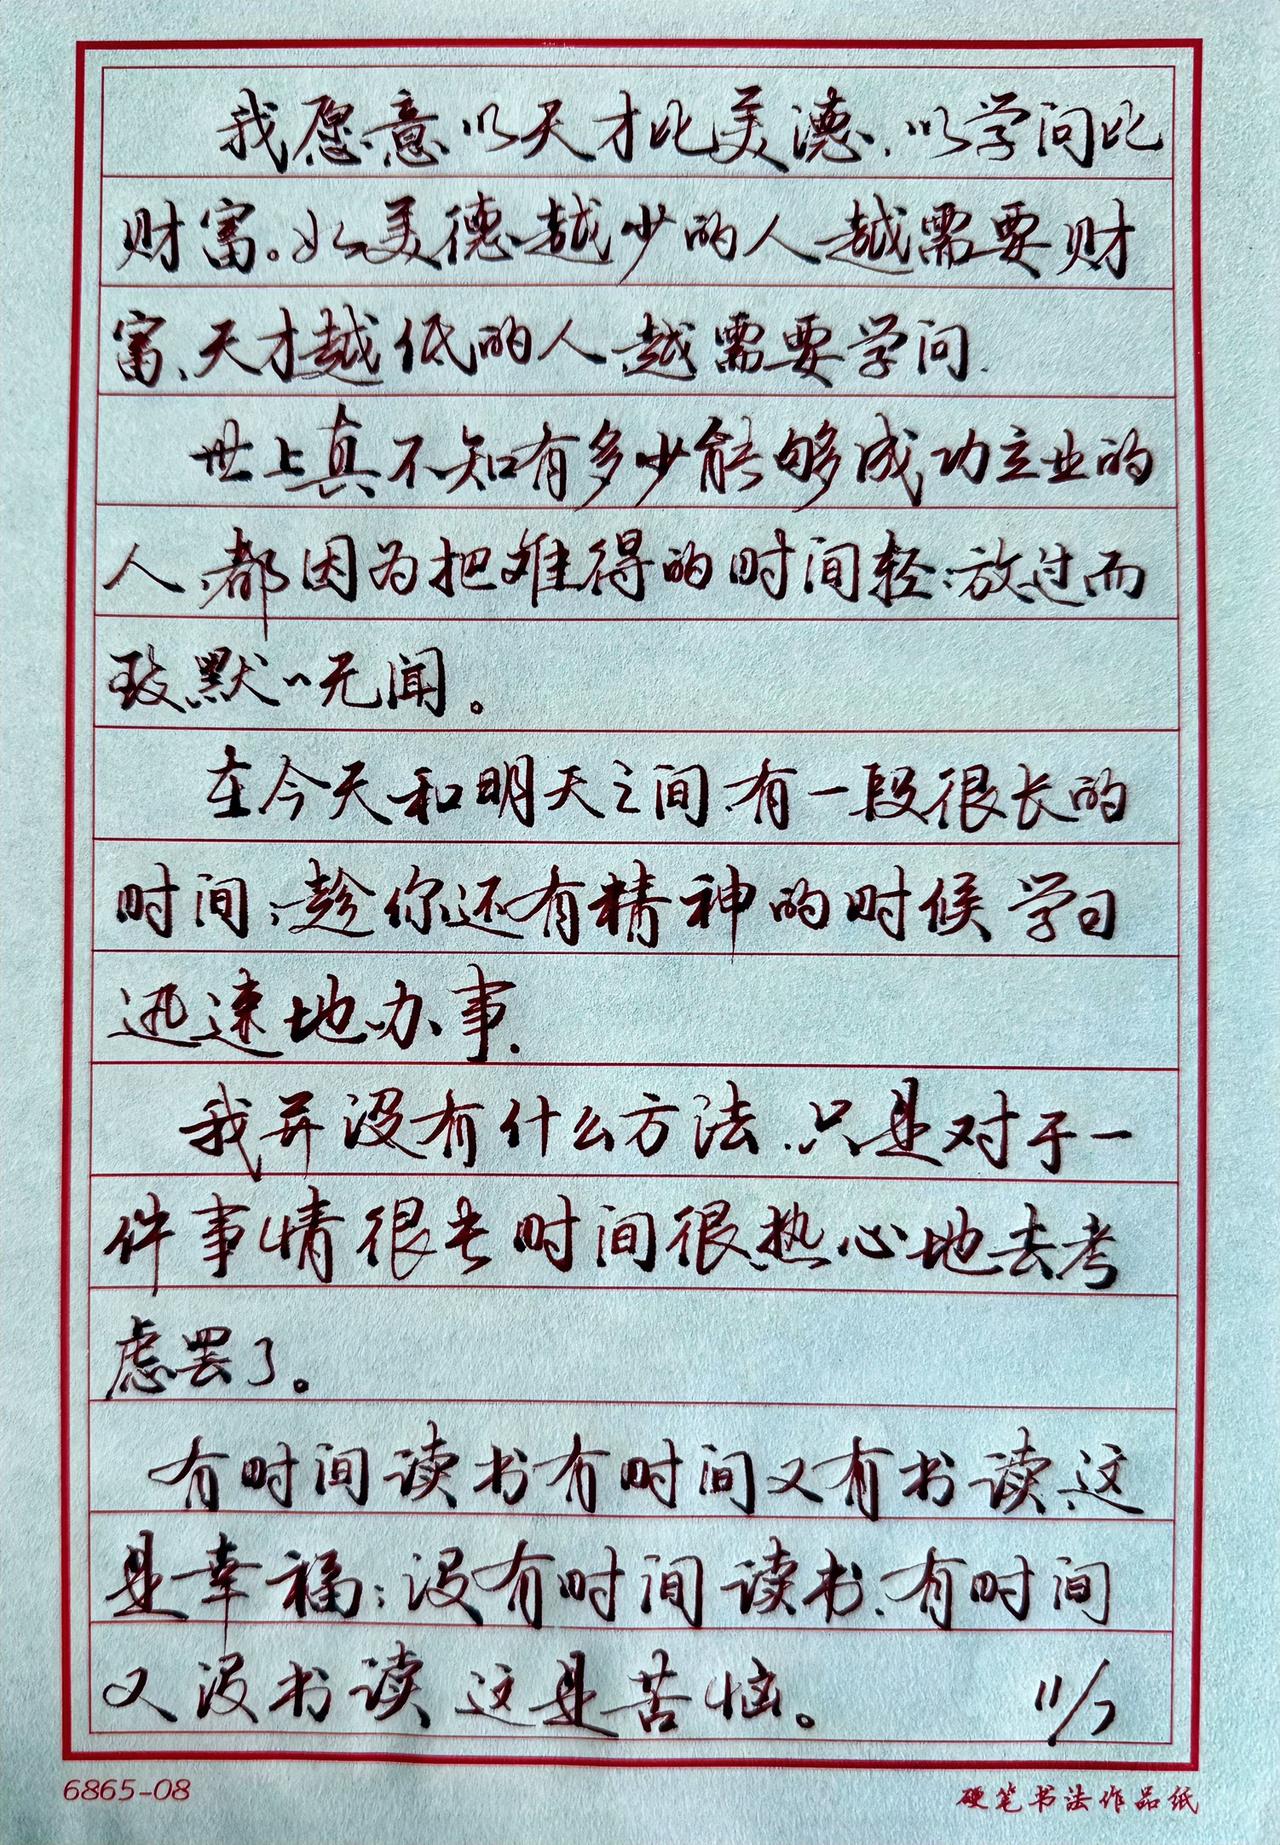 我愿意以天才比美德、以学问比
财富。如美德越少的人越需要财
富、天才越低的人、越需要学问.
世上真不知有多少能够成功立业的
人、都因为把难得的时间轻:放过而
致默〃无闻。
在今天和明天之间、有一段很长的
时间;趁你还有精神的时候学习
迅速地办事.
我并没有什么方法、只是对于一
件事情很长时间很热心地去考
虑罢了。
有时间读书有时间又有书读、这
是幸福;没有时间读书、有时间
又没书读这是苦恼。 11/7
6865-08 硬笔书法作品纸